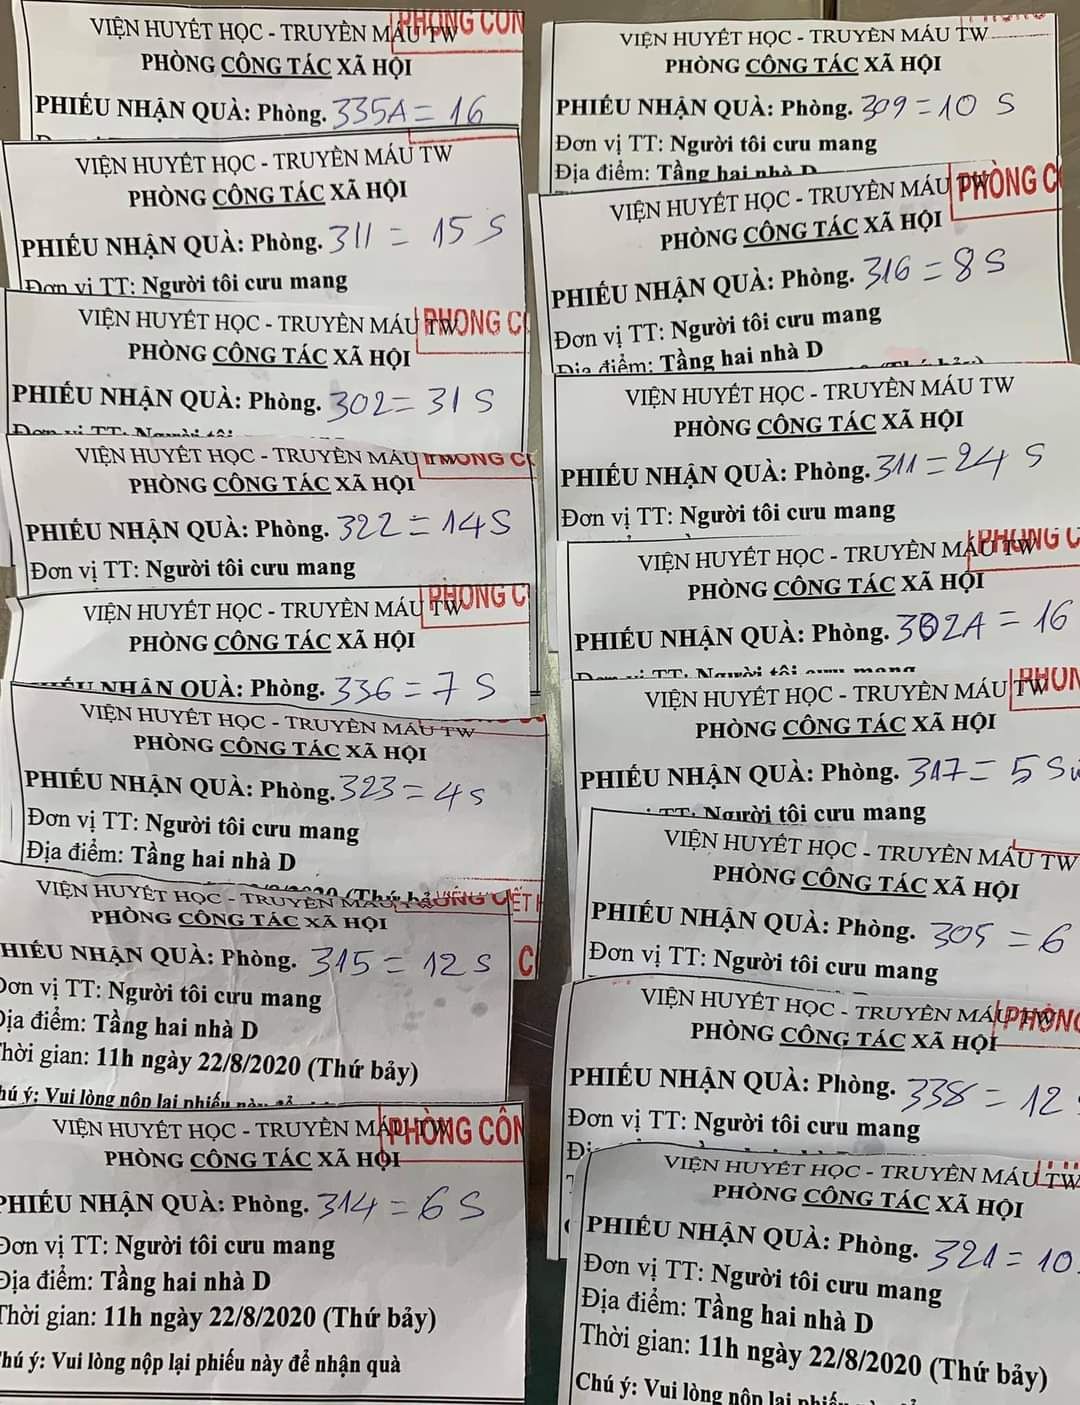 VIỆN HUYẾT HỌC - TRUYỀN MÁU TW
PHÒNG CÔNG TÁC XÃ HỘI
PHIẾU NHẬN QUÀ: Phòng. 335A = 16
VIỆN HUYẾT HỌC - TRUYỀN MÁU TW
PHÒNG CÔNG TÁC XÃ HỘI
PHIẾU NHẬN QUÀ: Phòng. 311 = 15 S
Đơn vị TT: Người tôi cưu mang
VIỆN HUYẾT HỌC - TRUYỀN MÁU TW
PHÒNG CÔNG TÁC XÃ HỘI
PHIẾU NHẬN QUÀ: Phòng. 302 = 31 S
VIỆN HUYẾT HỌC - TRUYỀN MÁU
PHÒNG CÔNG TÁC XÃ HỘI
PHIẾU NHẬN QUÀ: Phòng. 322 = 14 S
Đơn vị TT: Người tôi cưu mang
VIỆN HUYẾT HỌC - TRUYỀN MÁU TW
PHÒNG CÔNG TÁC XÃ HỘI
NHẬN QUÀ: Phòng. 336 = 7 S
VIỆN HUYẾT HỌC - TRUYỀN MÁU TW
PHÒNG CÔNG TÁC XÃ HỘI
PHIẾU NHẬN QUÀ: Phòng. 323 = 4 S
Đơn vị TT: Người tôi cưu mang
Địa điểm: Tầng hai nhà D
VIỆN HUYẾT HỌC - TRUYỀN MÁU
PHÒNG CÔNG TÁC XÃ HỘI
HIẾU NHẬN QUÀ: Phòng. 315 = 12 S
Đơn vị TT: Người tôi cưu mang
Địa điểm: Tầng hai nhà D
Thời gian: 11h ngày 22/8/2020 (Thứ bảy)
Chú ý: Vui lòng nộp lại phiếu này
VIỆN HUYẾT HỌC - TRUYỀN MÁU TW
PHÒNG CÔNG TÁC XÃ HỘI
PHIẾU NHẬN QUÀ: Phòng. 314 = 6 S
Đơn vị TT: Người tôi cưu mang
Địa điểm: Tầng hai nhà D
Thời gian: 11h ngày 22/8/2020 (Thứ bảy)
Chú ý: Vui lòng nộp lại phiếu này để nhận quà
VIỆN HUYẾT HỌC - TRUYỀN MÁU TW
PHÒNG CÔNG TÁC XÃ HỘI
PHIẾU NHẬN QUÀ: Phòng. 309 = 10 S
Đơn vị TT: Người tôi cưu mang
Địa điểm: Tầng hai nhà D
VIỆN HUYẾT HỌC - TRUYỀN MÁU TW
PHÒNG CÔNG TÁC XÃ HỘI
PHIẾU NHẬN QUÀ: Phòng. 316 = 8 S
Đơn vị TT: Người tôi cưu mang
Địa điểm: Tầng hai nhà D
VIỆN HUYẾT HỌC - TRUYỀN MÁU TW
PHÒNG CÔNG TÁC XÃ HỘI
PHIẾU NHẬN QUÀ: Phòng. 311 = 24 S
Đơn vị TT: Người tôi cưu mang
VIỆN HUYẾT HỌC - TRUYỀN MÁU TW
PHÒNG CÔNG TÁC XÃ HỘI
PHIẾU NHẬN QUÀ: Phòng. 302A = 16
VIỆN HUYẾT HỌC - TRUYỀN MÁU TW
PHÒNG CÔNG TÁC XÃ HỘI
PHIẾU NHẬN QUÀ: Phòng. 317 = 5 Sư
TT: Người tôi cưu mang
VIỆN HUYẾT HỌC - TRUYỀN MÁU TW
PHÒNG CÔNG TÁC XÃ HỘI
PHIẾU NHẬN QUÀ: Phòng. 305 = 6
Đơn vị TT: Người tôi cưu mang
VIỆN HUYẾT HỌC - TRUYỀN MÁU TW
PHÒNG CÔNG TÁC XÃ HỘI
PHIẾU NHẬN QUÀ: Phòng. 338 = 12
Đơn vị TT: Người tôi cưu mang
VIỆN HUYẾT HỌC - TRUYỀN MÁU TW
PHÒNG CÔNG TÁC XÃ HỘI
PHIẾU NHẬN QUÀ: Phòng. 321 = 10
Đơn vị TT: Người tôi cưu mang
Địa điểm: Tầng hai nhà D
Thời gian: 11h ngày 22/8/2020 (Thứ bảy)
Chú ý: Vui lòng nộp lại phiếu